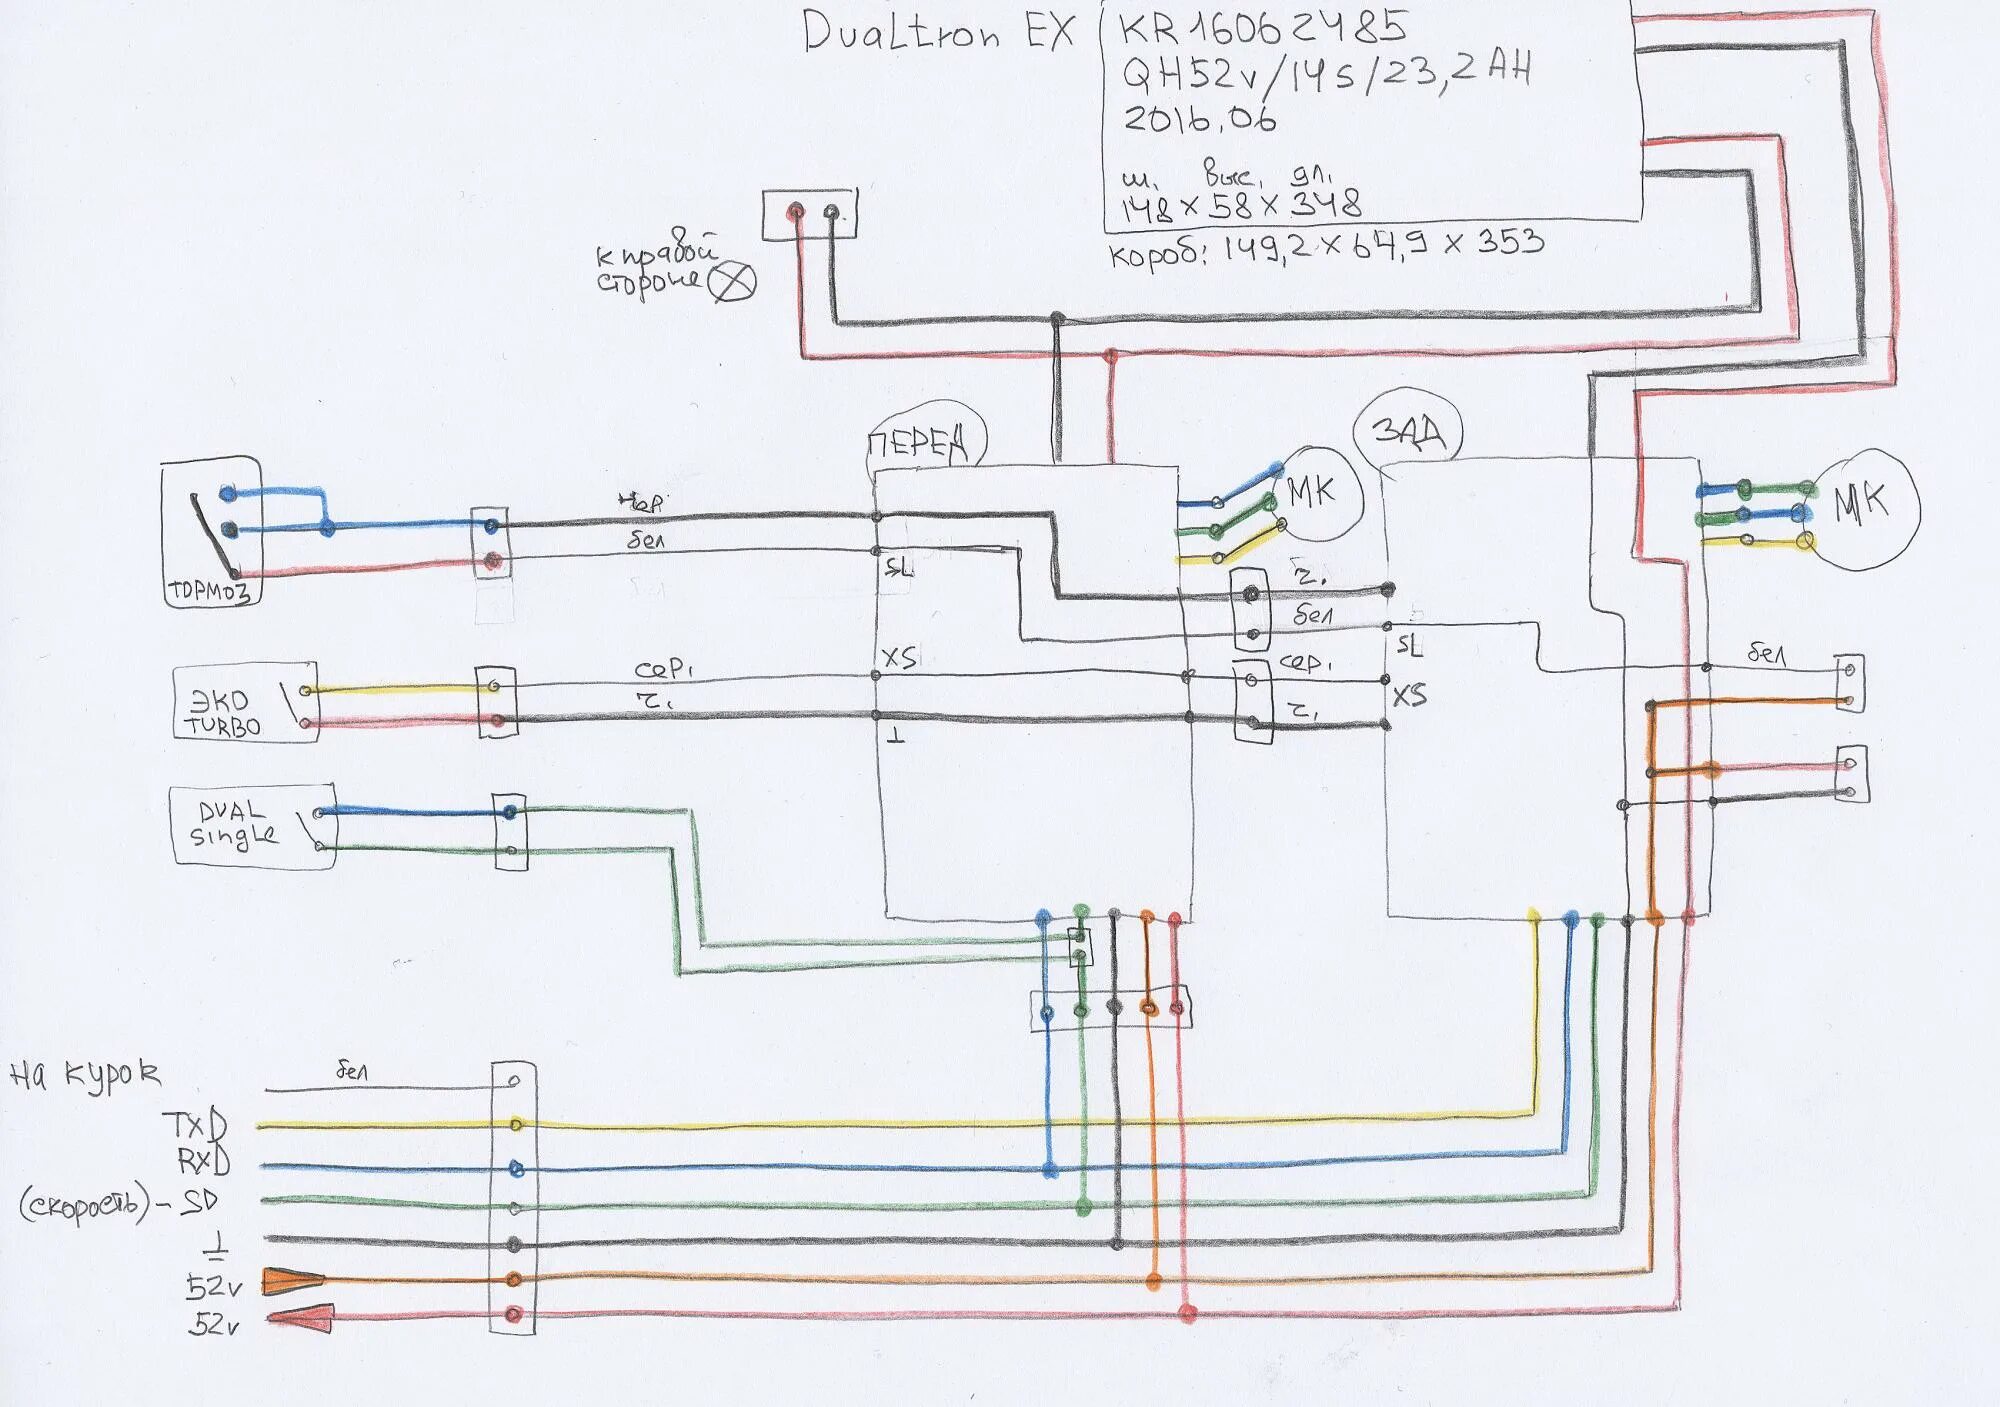 Dualtron EX
KR16062485
QH52v/14s/23,2AH
2016,06
ш. выс. дл.
148 x 58 x 348
короб: 149,2 x 64,9 x 353
к правой
стороне
ПЕРЕД
ЗАД
МК
МК
чер.
бел
SL
ТОРМОЗ
ч.
бел
SL
сер.
ч.
XS
⊥
сер.
ч.
XS
бел
ЭКО
TURBO
DUAL
Single
на курок
бел
TXD
RXD
(скорость) - SD
⊥
52v
52v